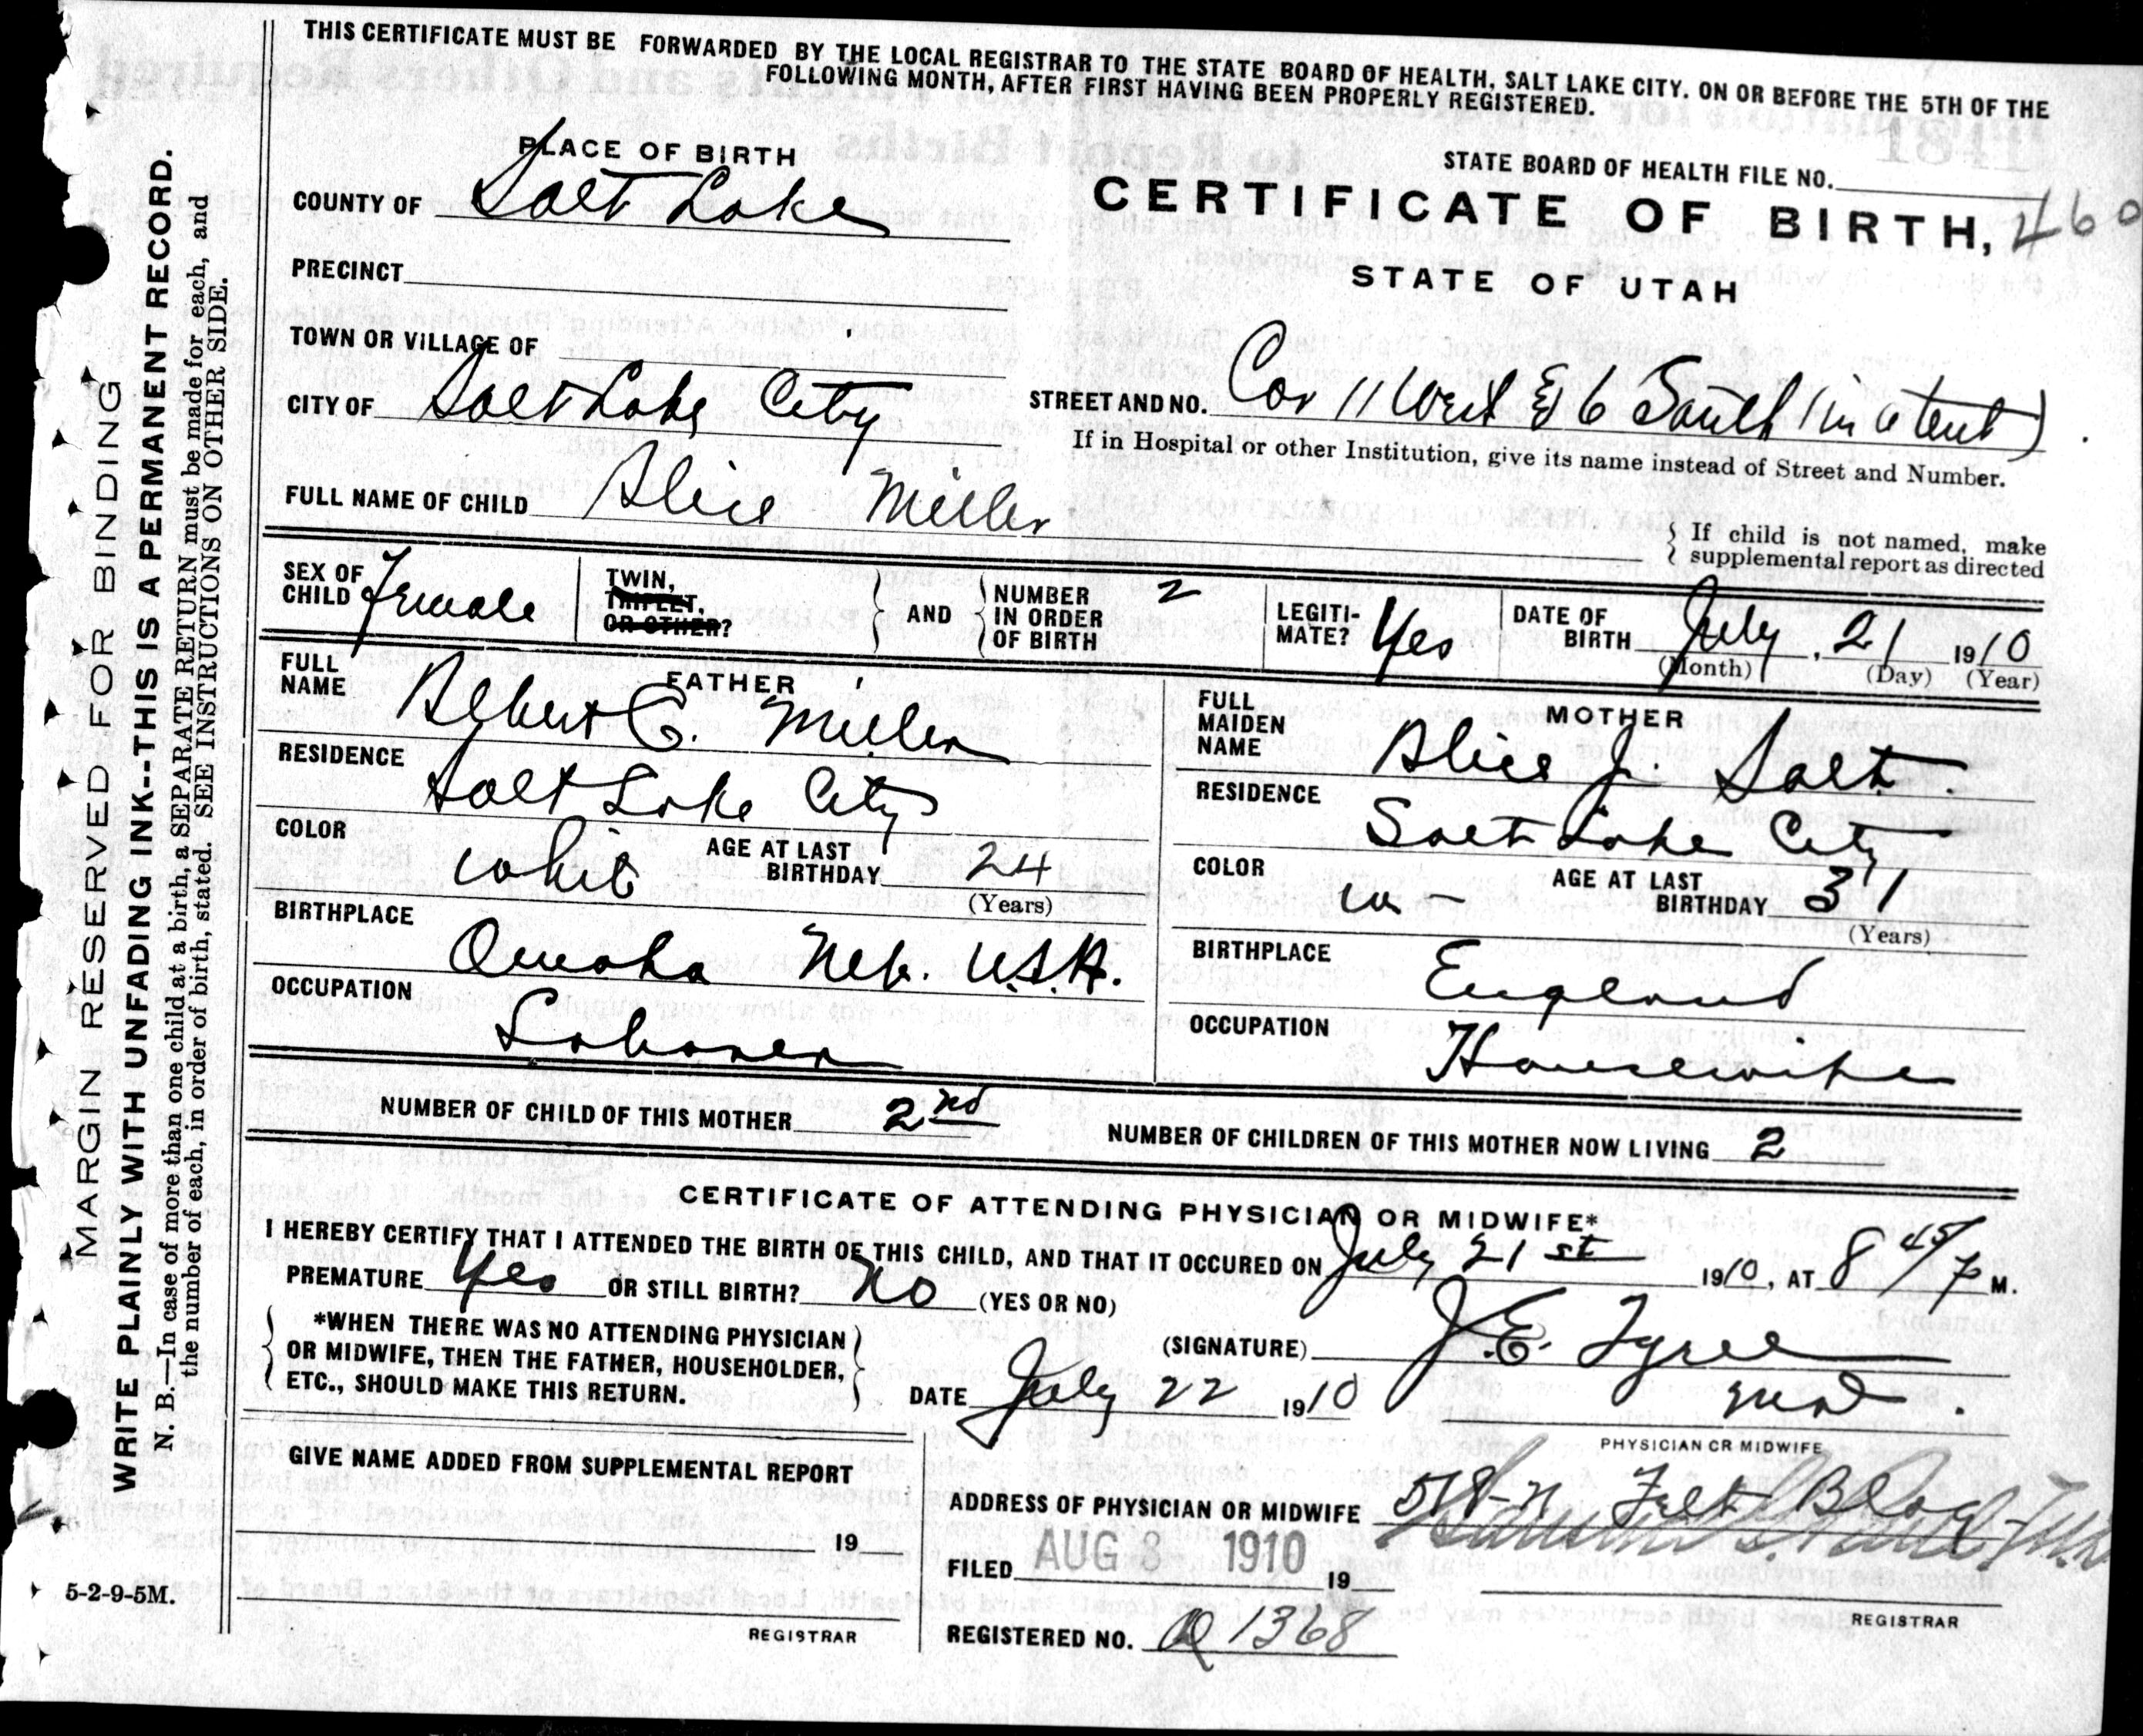 THIS CERTIFICATE MUST BE FORWARDED BY THE LOCAL REGISTRAR TO THE STATE BOARD OF HEALTH, SALT LAKE CITY, ON OR BEFORE THE 5TH OF THE
FOLLOWING MONTH, AFTER FIRST HAVING BEEN PROPERLY REGISTERED.
MARGIN RESERVED FOR BINDING
WRITE PLAINLY WITH UNFADING INK--THIS IS A PERMANENT RECORD.
N. B.—In case of more than one child at a birth, a SEPARATE RETURN must be made for each, and
the number of each, in order of birth, stated. SEE INSTRUCTIONS ON OTHER SIDE.
PLACE OF BIRTH
STATE BOARD OF HEALTH FILE NO.
COUNTY OF Salt Lake
CERTIFICATE OF BIRTH, 460
PRECINCT
STATE OF UTAH
TOWN OR VILLAGE OF
CITY OF Salt Lake City
STREET AND NO. Cor 11 West & 6 South (in a tent)
If in Hospital or other Institution, give its name instead of Street and Number.
FULL NAME OF CHILD Alice Miller
If child is not named, make
supplemental report as directed
SEX OF CHILD Female
TWIN, TRIPLET, OR OTHER?
AND
NUMBER IN ORDER OF BIRTH 2
LEGITI-MATE? Yes
DATE OF BIRTH July, 21 1910
(Month) (Day) (Year)
FATHER
FULL NAME Albert C. Miller
RESIDENCE
Salt Lake City
COLOR white AGE AT LAST BIRTHDAY 24
(Years)
BIRTHPLACE
Omaha Neb. U.S.A.
OCCUPATION
Laborer
MOTHER
FULL MAIDEN NAME Alice J. Salt.
RESIDENCE
Salt Lake City
COLOR w - AGE AT LAST BIRTHDAY 31
(Years)
BIRTHPLACE
England
OCCUPATION
Housewife
NUMBER OF CHILD OF THIS MOTHER 2nd
NUMBER OF CHILDREN OF THIS MOTHER NOW LIVING 2
CERTIFICATE OF ATTENDING PHYSICIAN OR MIDWIFE*
I HEREBY CERTIFY THAT I ATTENDED THE BIRTH OF THIS CHILD, AND THAT IT OCCURED ON July 21st 1910, AT 8 45/P M.
PREMATURE Yes OR STILL BIRTH? No (YES OR NO)
*WHEN THERE WAS NO ATTENDING PHYSICIAN
OR MIDWIFE, THEN THE FATHER, HOUSEHOLDER,
ETC., SHOULD MAKE THIS RETURN.
(SIGNATURE) J.E. Tyree
DATE July 22 1910
MD.
PHYSICIAN OR MIDWIFE
GIVE NAME ADDED FROM SUPPLEMENTAL REPORT
ADDRESS OF PHYSICIAN OR MIDWIFE 518-n Felt Bldg
19
FILED AUG 3 1910 19
5-2-9-5M.
REGISTRAR
REGISTERED NO. a 1368
REGISTRAR